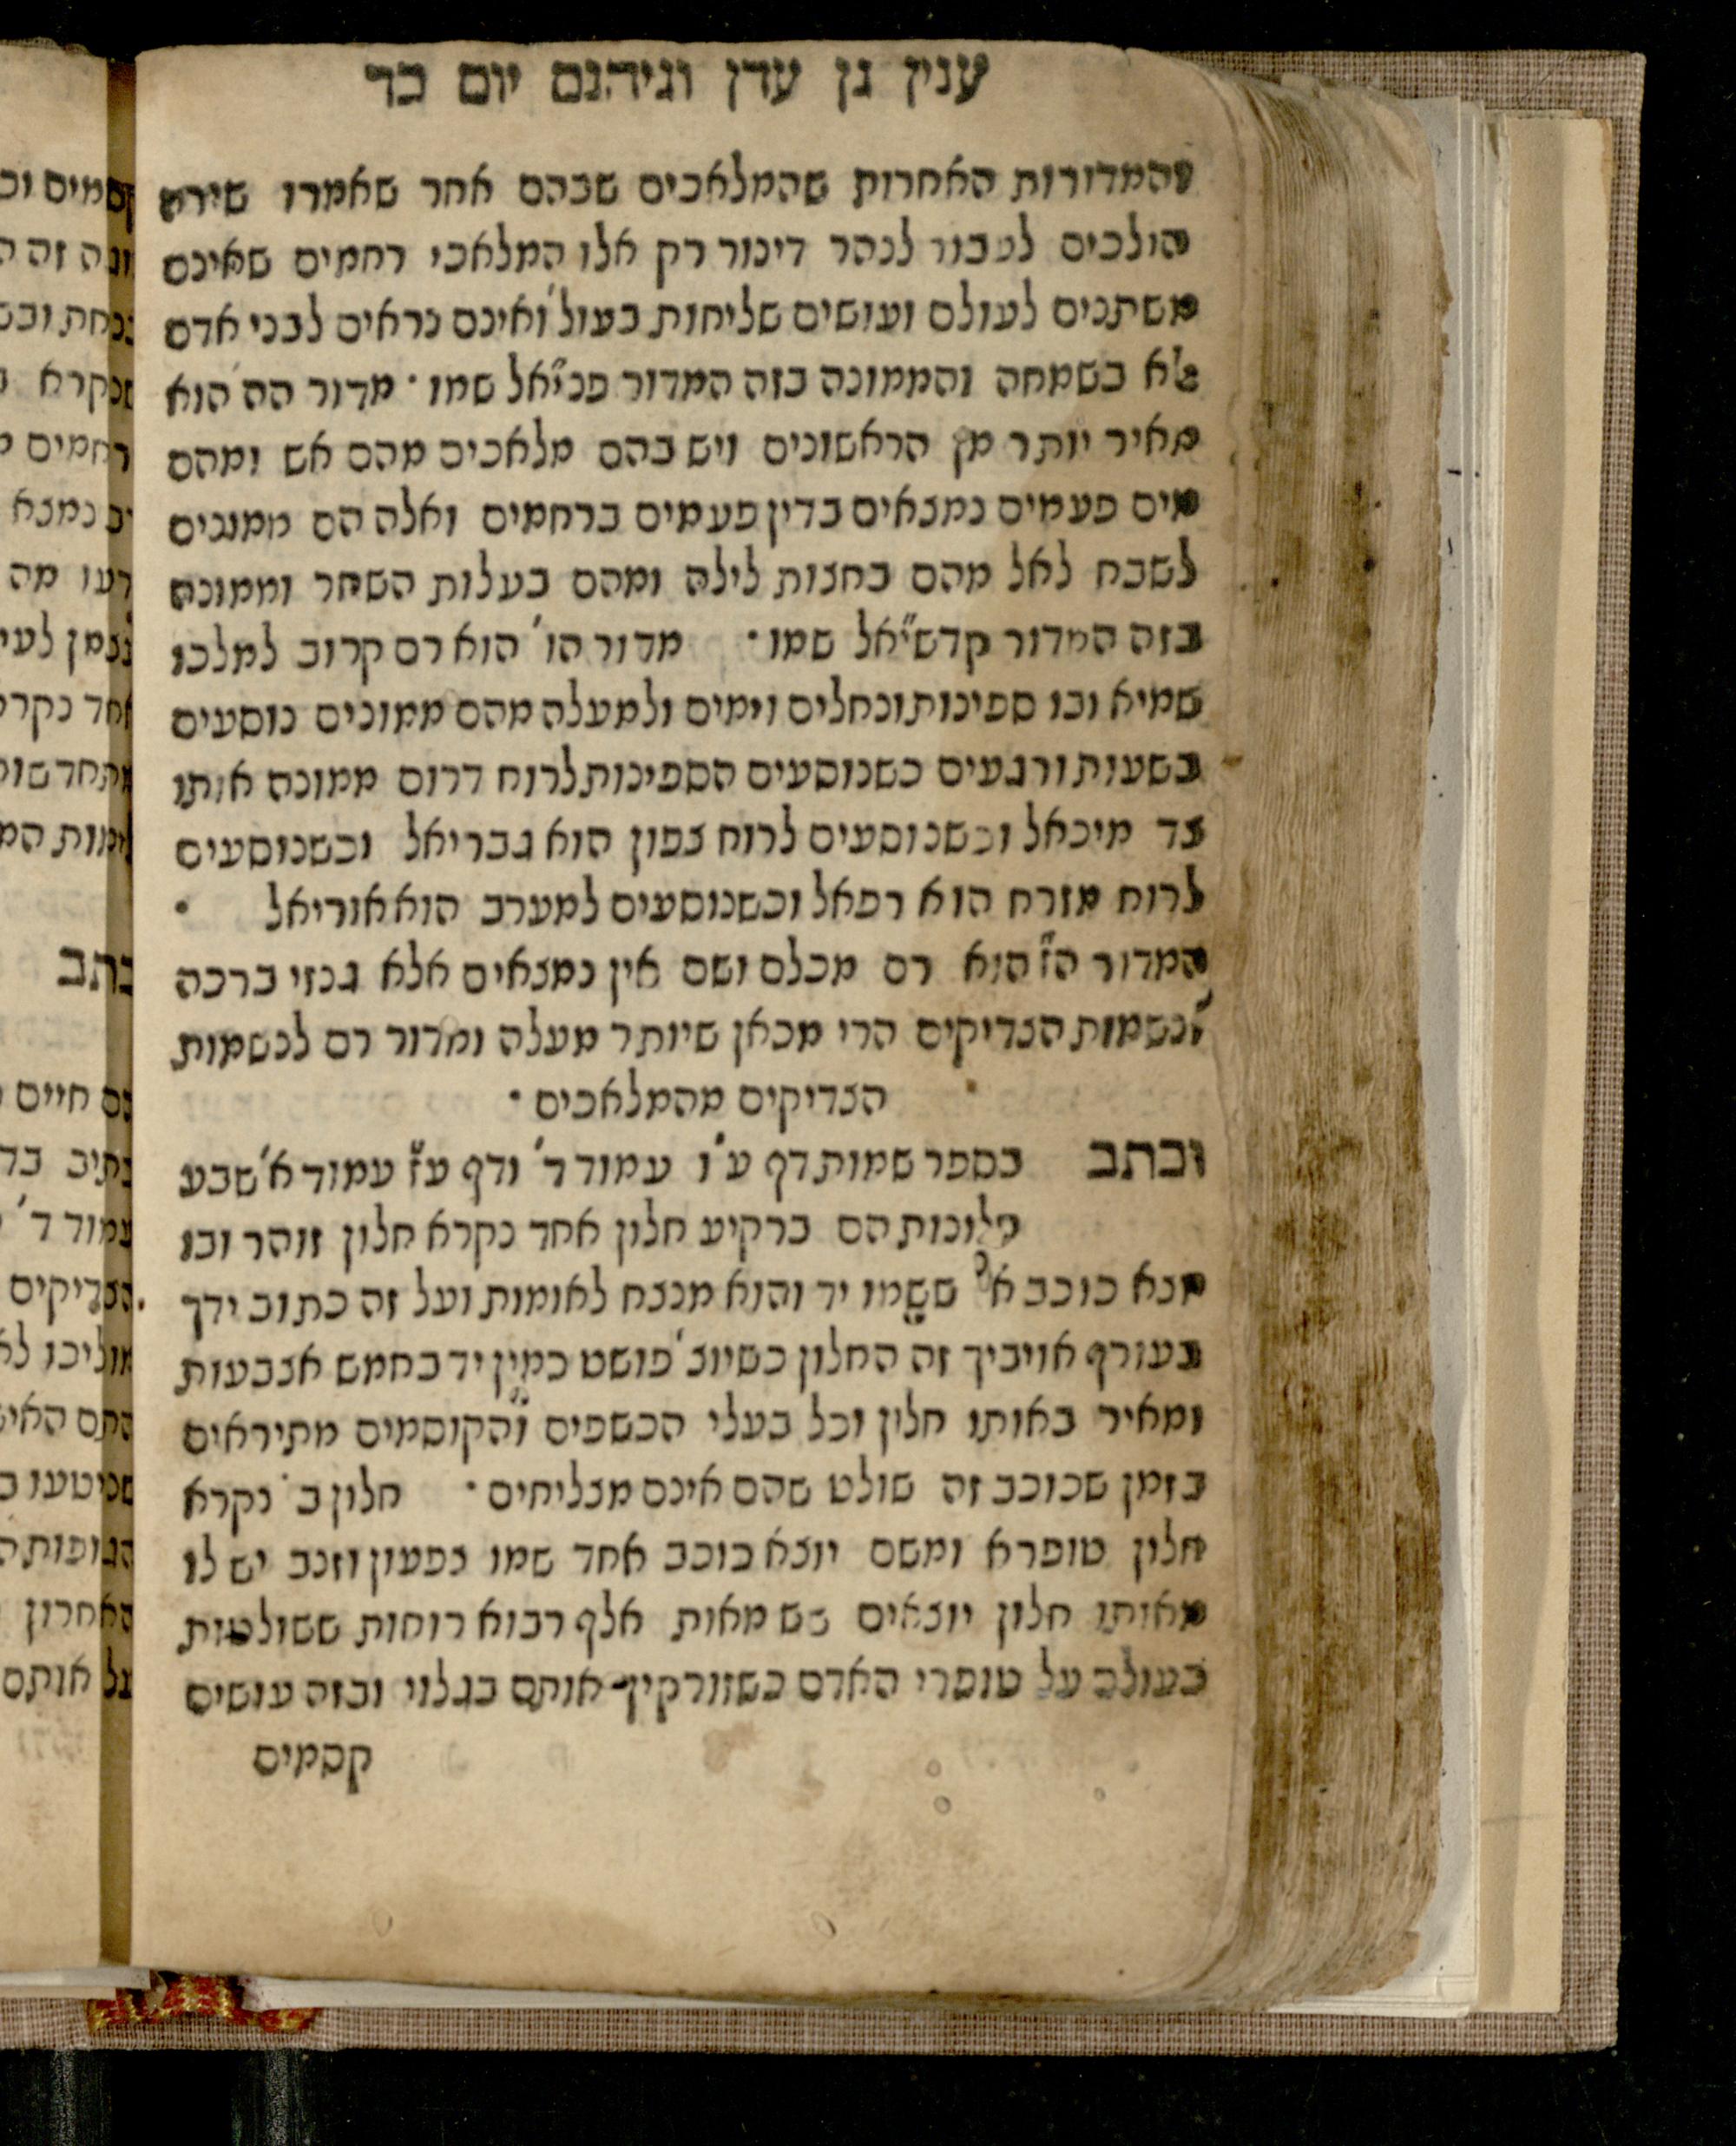 ענין גן עדן וגיהנם יום כד
שהמדורות האחרות שהמלאכים שבהם אחר שאמרו שירה
הולכים לטבור לנהר דינור רק אלו המלאכי רחמים שאינם
משתנים לעולם ועושים שליחות בעול' ואינם נראים לבני אדם
אלא בשמחה והממונה בזה המדור פני"אל שמו · מדור הה' הוא
מאיר יותר מן הראשונים ויש בהם מלאכים מהם אש ומהם
מים פעמים נמצאים בדין פעמים ברחמים ואלה הם ממונים
לשבח לאל מהם בחצות לילה ומהם בעלות השחר וממונה
בזה המדור קדשי"אל שמו · מדור הו' הוא רם קרוב למלכו
שמיא ובו ספינות ונחלים וימים ולמעלה מהם ממונים נוסעים
בשעות ורגעים כשנוסעים הספינות לרוח דרום ממונה אותו
צד מיכאל וכשנוסעים לרוח צפון הוא גבריאל וכשנוסעים
לרוח מזרח הוא רפאל וכשנוסעים למערב הוא אוריאל ·
המדור הז' הוא רם מכלם ושם אין נמצאים אלא גנזי ברכה
ונשמות הצדיקים הרי מכאן שיותר מעלה ומדור רם לנשמות
הצדיקים מהמלאכים ·
וכתב בספר שמות דף ע"ו עמוד ד' ודף ע"ז עמוד א' שבע
חלונות הם ברקיע חלון אחד נקרא חלון זוהר ובו
מצא כוכב א' ששמו יד והוא מנצח לאומות ועל זה כתוב ידך
בעורף אויביך זה החלון כשיוצ' פושט כמין יד בחמש אצבעות
ומאיר באותו חלון וכל בעלי הכשפים והקוסמים מתיראים
בזמן שכוכב זה שולט שהם אינם מצליחים · חלון ב' נקרא
חלון טופרא ומשם יוצא כוכב אחד שמו צפעון וזנב יש לו
מאותו חלון יוצאים שש מאות אלף רבוא רוחות ששולטות
בעולם על טופרי האדם כשזורקין אותם בגלוי ובזה עושים
קסמים